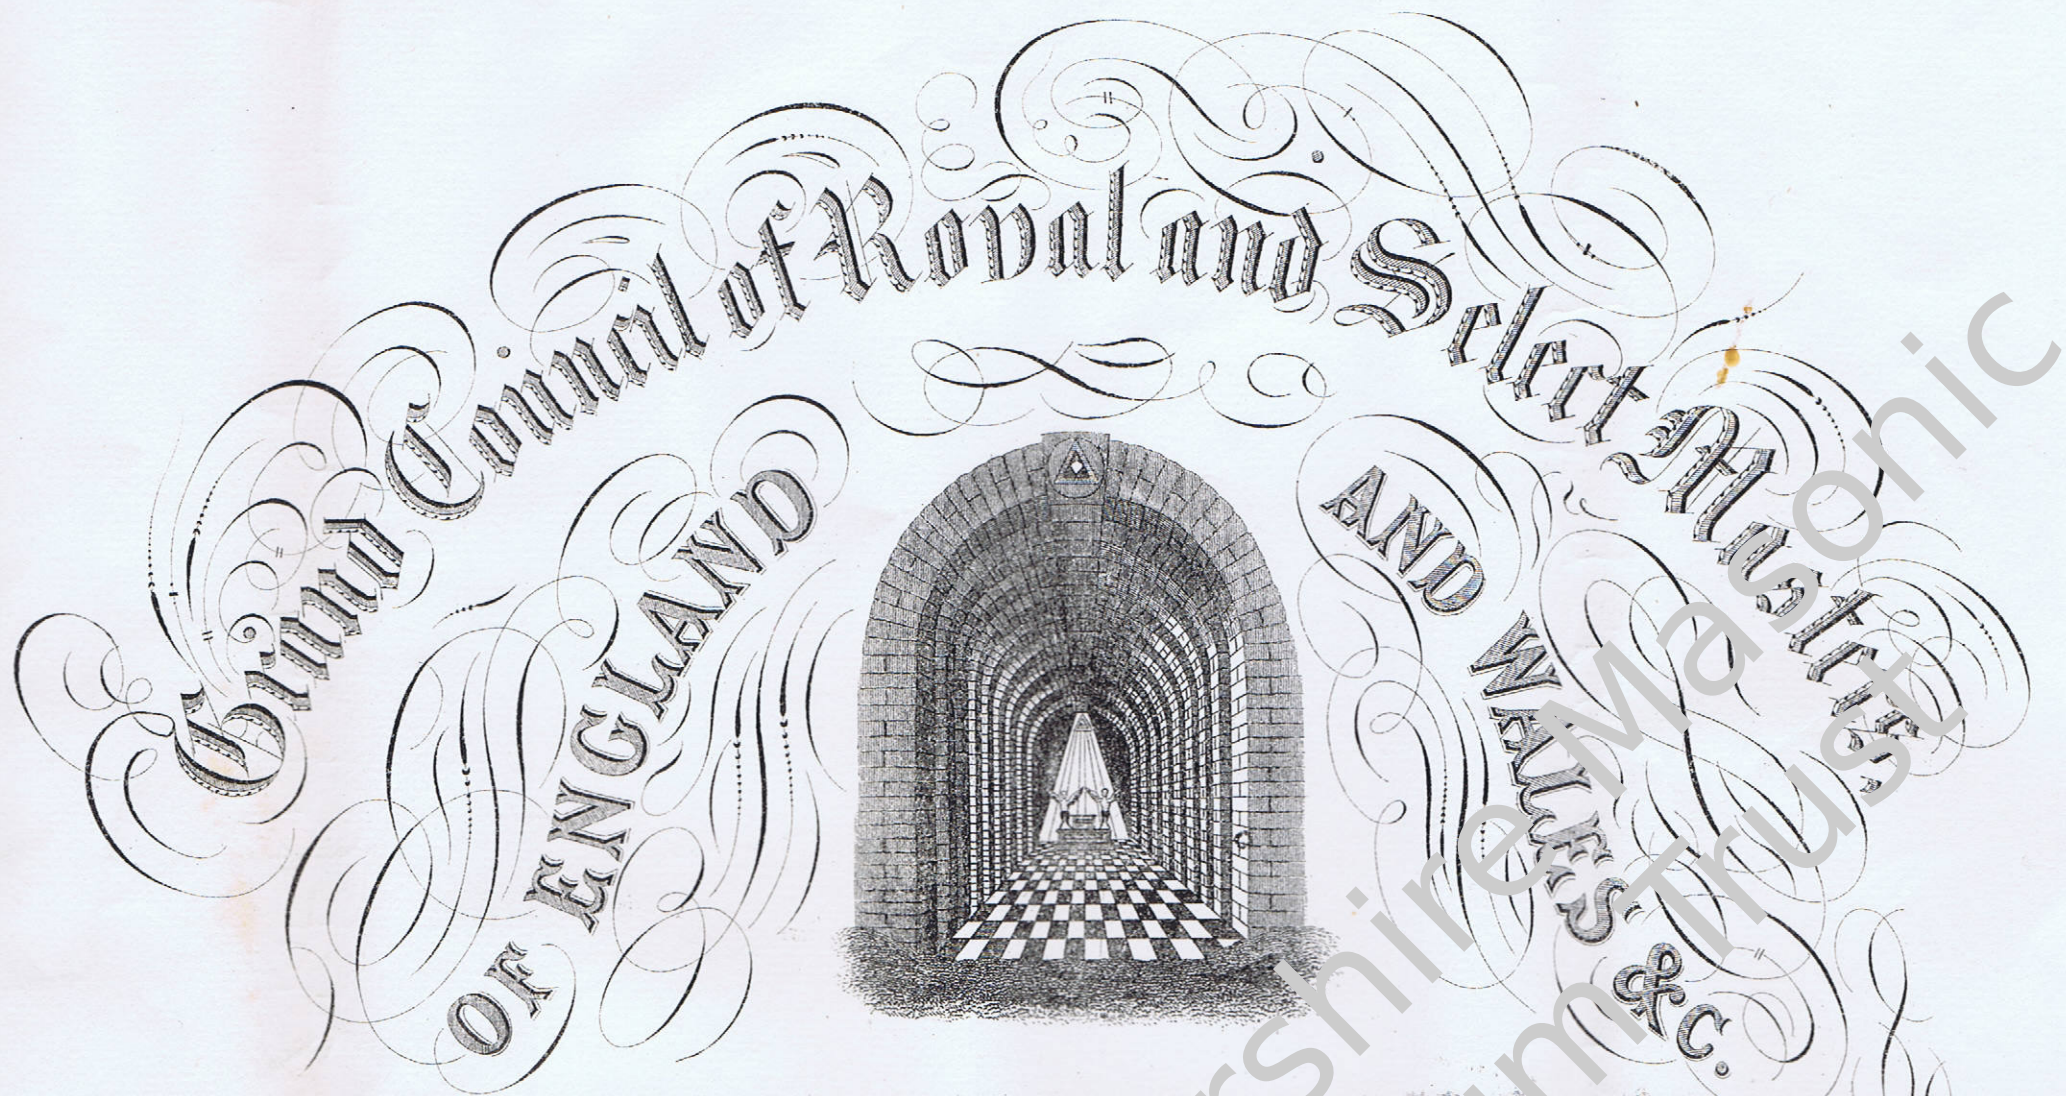 Grand Council of Royal and Select Masters
OF ENGLAND AND WALES &C.
shire Masonic
Trust